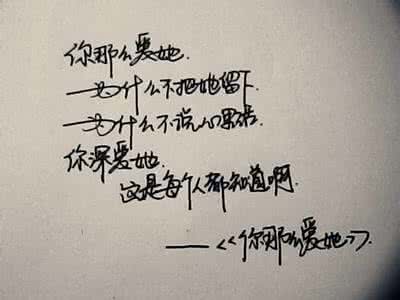 你那么爱她.
为什么不把她留下
为什么不说心里话.
你深爱她.
这是每个人都知道啊.
——<<你那么爱她>>.